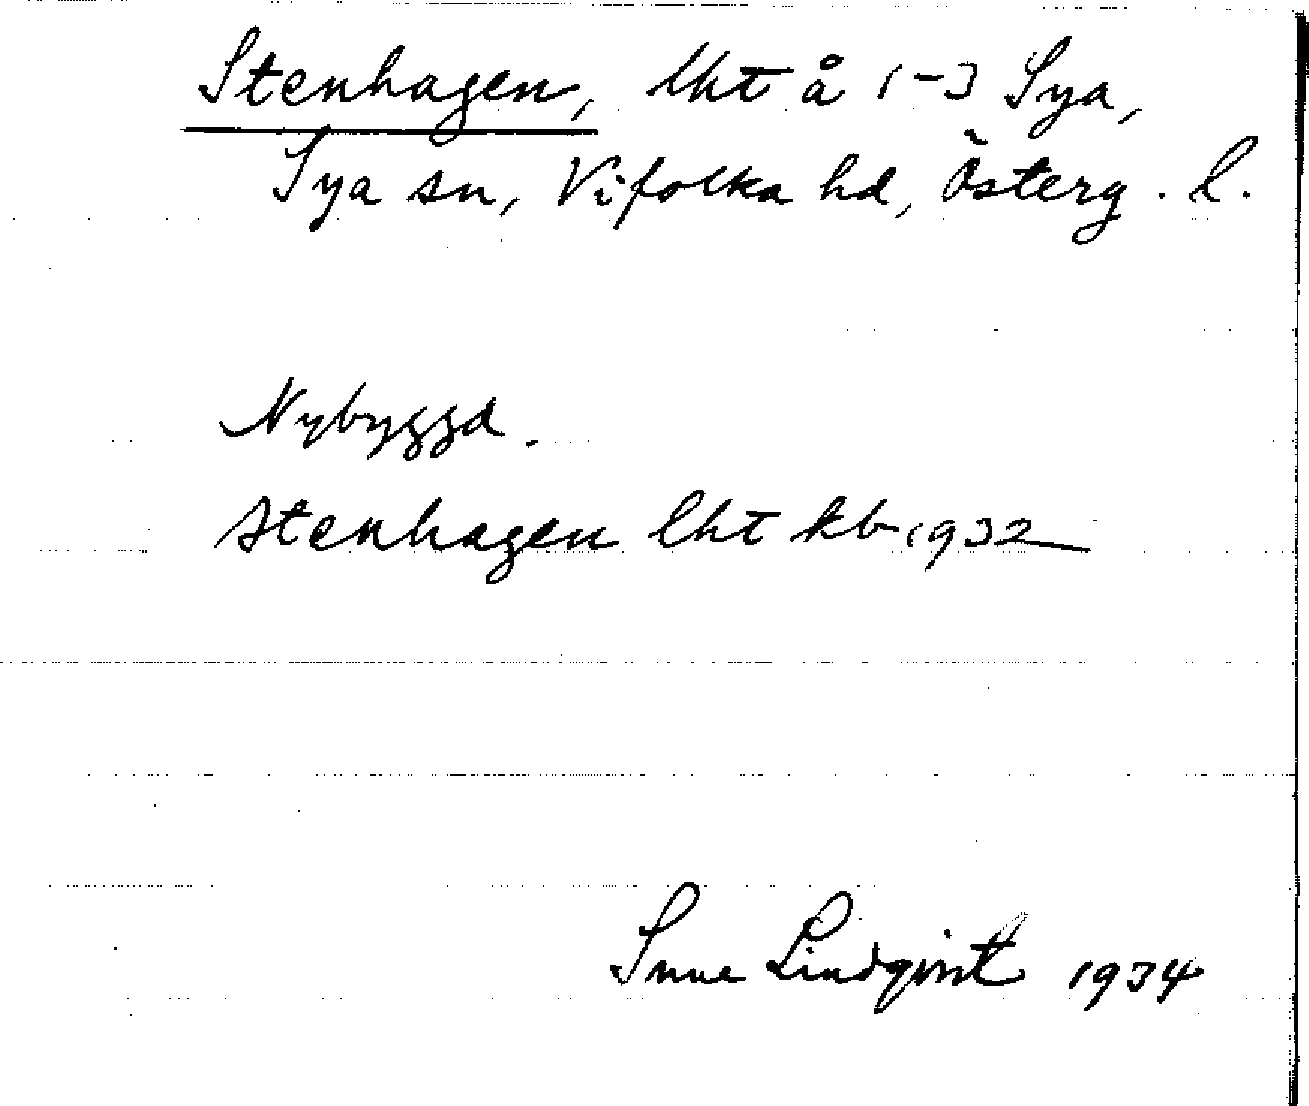 Stenhagen, lht å 1-3 Sya,
Sya sn, Vifolka hd, Österg. l.
Nybyggd.
Stenhagen lht kb 1932
Sune Lindqvist 1934